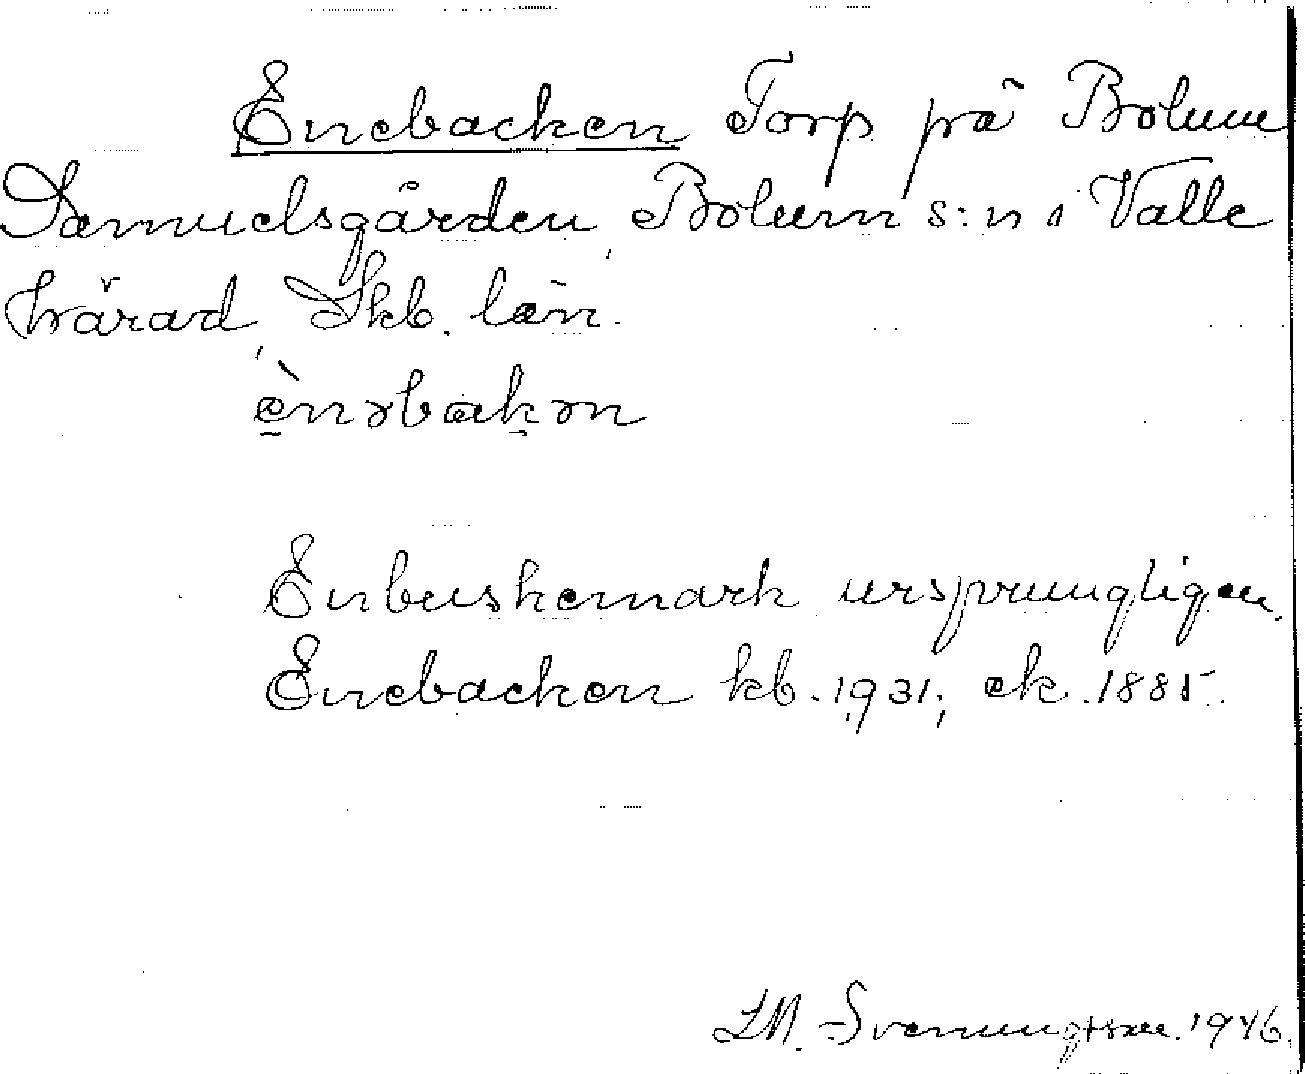 Enebacken Torp på Bolum
Samuelsgården, Bolum s:n i Valle
härad, Skb. län.
ènəbakən
Enbuskemark ursprungligen.
Enebacken kb. 1931; ek. 1885.
I.M. Svenungsson. 1946.